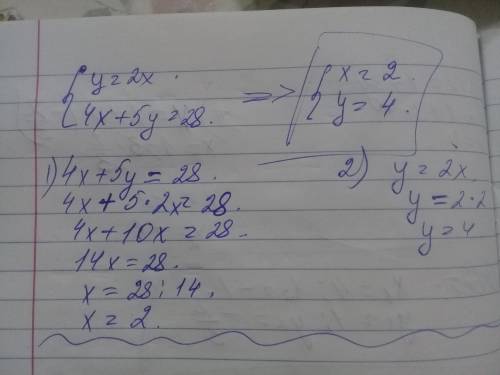 { y = 2x.
4x + 5y = 28. => { x = 2.
y = 4.
1) 4x + 5y = 28.
4x + 5 · 2x = 28.
4x + 10x = 28.
14x = 28.
x = 28 : 14.
x = 2.
2) y = 2x.
y = 2 · 2
y = 4